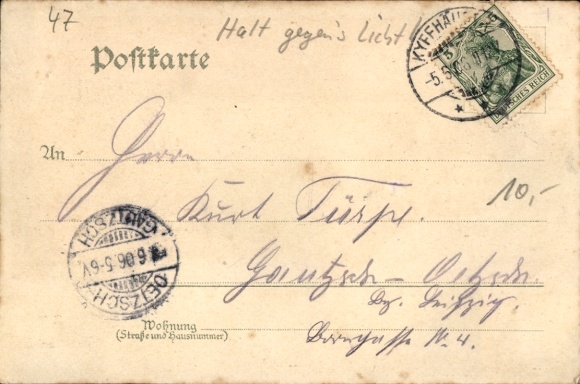 47
Halt gegen's Licht!
Postkarte
KYFFHÄUSER
-5.5.06
DEUTSCHES REICH
An
Herrn
Kurt Türpe.
10,-
GAUTZSCH
6.06.5-6V
OETZSCH
Gautzsch-Oetzsch.
Bez. Leipzig.
Wohnung
(Straße und Hausnummer)
No. 4.